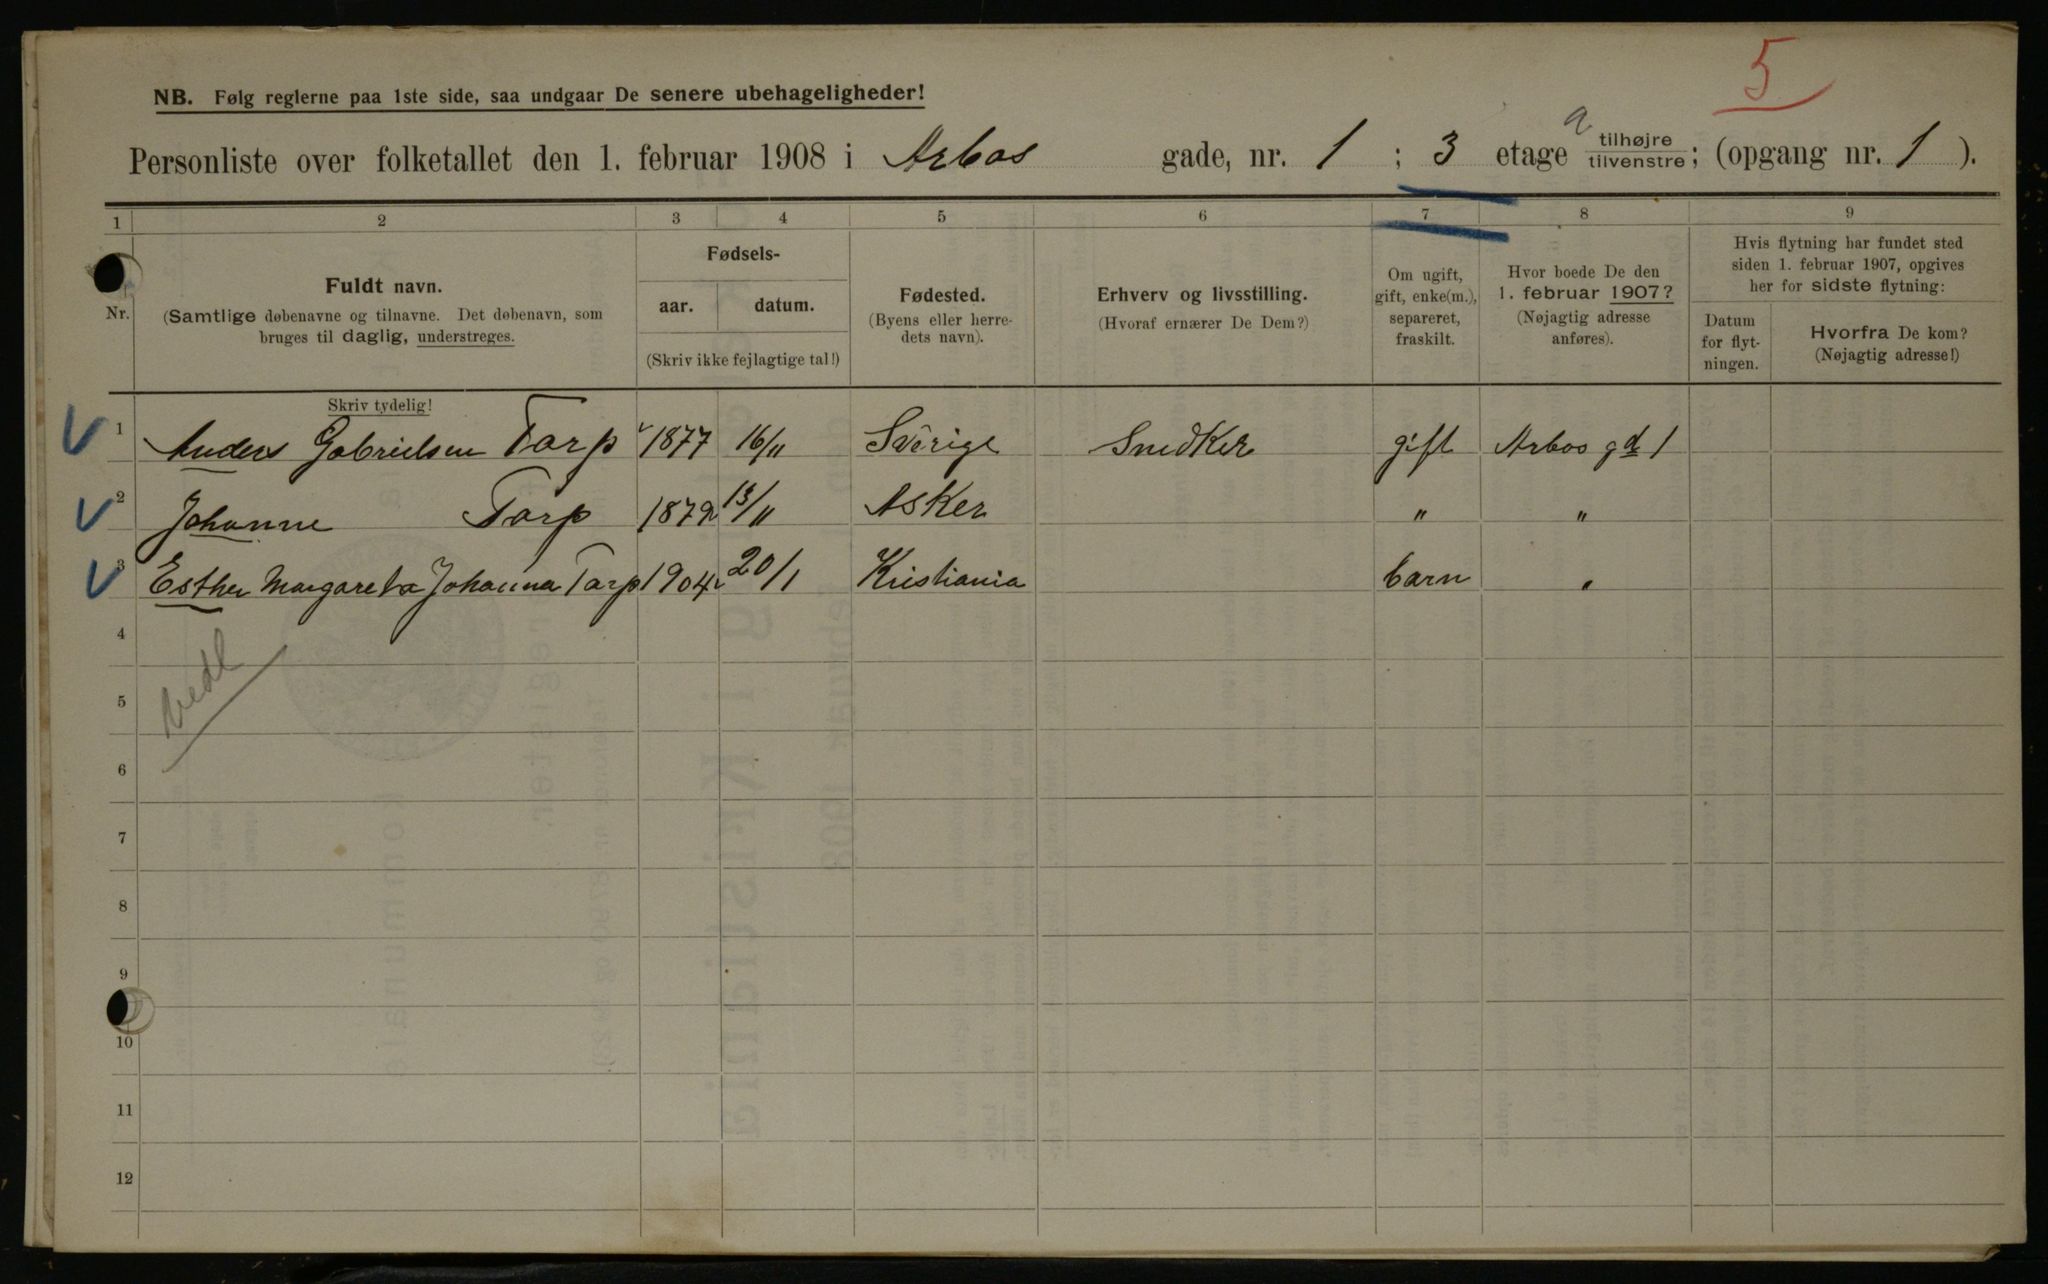 5
NB. Følg reglerne paa 1ste side, saa undgaar De senere ubehageligheder!
Personliste over folketallet den 1. februar 1908 i Arbos gade, nr. 1 ; 3 etage a tilhøjre tilvenstre; (opgang nr. 1 ).
1 2 3 4 5 6 7 8 9
Nr.
Fuldt navn.
(Samtlige døbenavne og tilnavne. Det døbenavn, som
bruges til daglig, understreges.
Fødsels-
aar. datum.
(Skriv ikke fejlagtige tal!)
Fødested.
(Byens eller herre-
dets navn).
Erhverv og livsstilling.
(Hvoraf ernærer De Dem?)
Om ugift,
gift, enke(m.),
separeret,
fraskilt.
Hvor boede De den
1. februar 1907?
(Nøjagtig adresse
anføres).
Hvis flytning har fundet sted
siden 1. februar 1907, opgives
her for sidste flytning:
Datum
for flyt-
ningen.
Hvorfra De kom?
(Nøjagtig adresse!)
Skriv tydelig!
1 Anders Gabrielsen Tarp 1877 16/11 Sverige SnedKer gift Arbos gd 1
2 Johanne Tarp 1872 13/11 AsKer " "
3 Esther Margareta Johanna Tarp 1904 20/1 Kristiania barn "
4
5
6
7
8
9
10
11
12